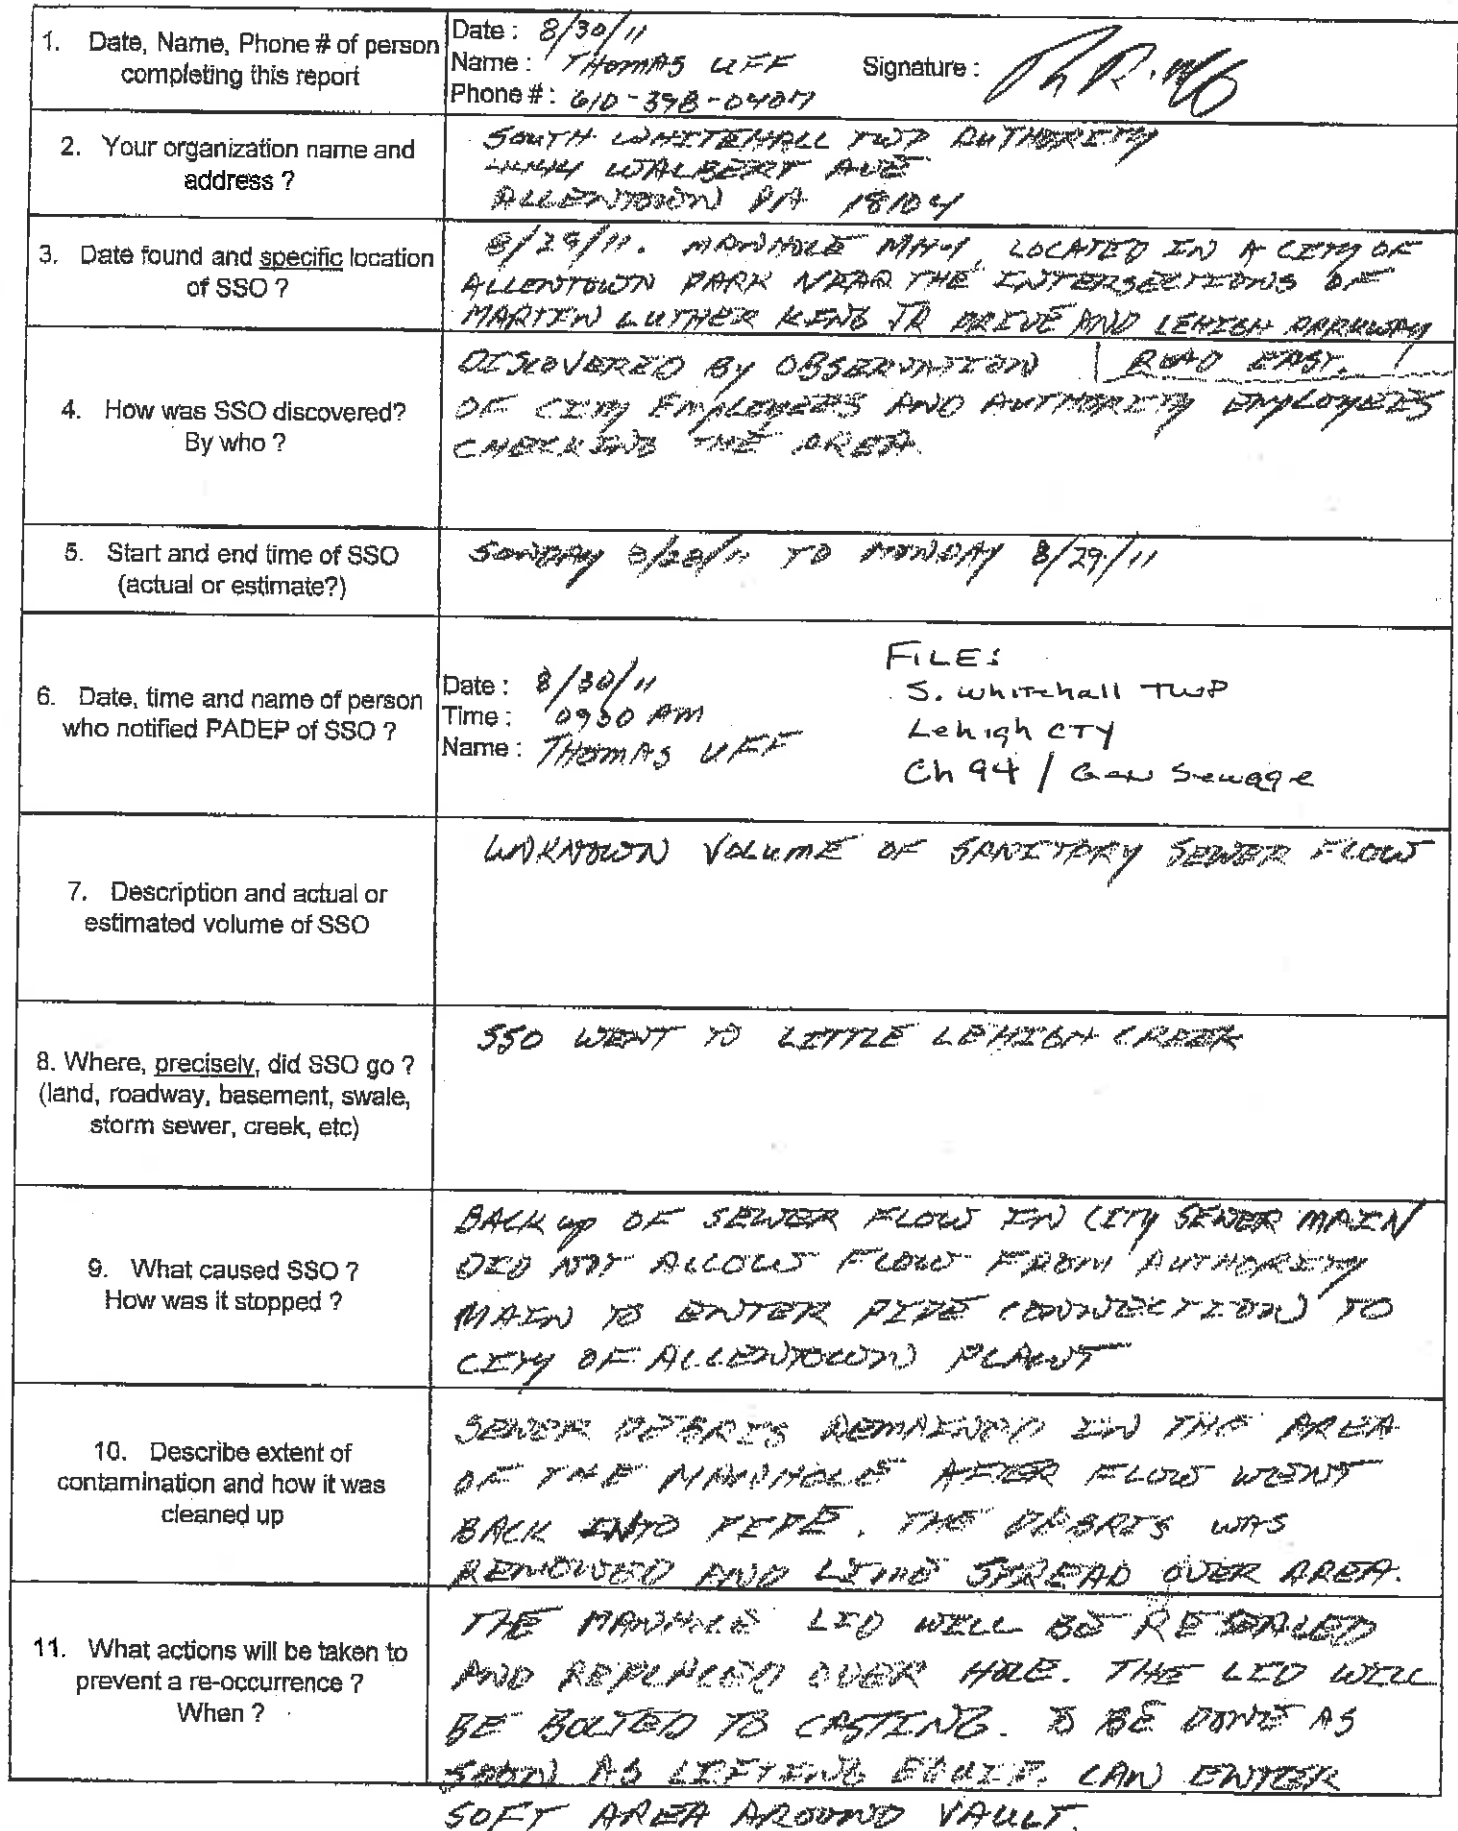 1. Date, Name, Phone # of person
completing this report
Date : 8/30/11
Name : THOMAS UFF
Phone # : 610-398-0407
Signature :
2. Your organization name and
address ?
SOUTH WHITEHALL TWP AUTHORITY
4444 WALBERT AVE
ALLENTOWN PA 18104
3. Date found and specific location
of SSO ?
8/29/11. MANHOLE MH-1, LOCATED IN A CITY OF
ALLENTOWN PARK NEAR THE INTERSECTIONS OF
MARTIN LUTHER KING JR DRIVE AND LEHIGH PARKWAY
ROAD EAST.
4. How was SSO discovered?
By who ?
DISCOVERED BY OBSERVATION
OF CITY EMPLOYEES AND AUTHORITY EMPLOYEES
CHECKING THE AREA.
5. Start and end time of SSO
(actual or estimate?)
SUNDAY 8/28/11 TO MONDAY 8/29/11
6. Date, time and name of person
who notified PADEP of SSO ?
Date : 8/30/11
Time : 0930 AM
Name : THOMAS UFF
FILE:
S. Whitehall TWP
Lehigh CTY
Ch 94 / Gen Sewage
7. Description and actual or
estimated volume of SSO
UNKNOWN VOLUME OF SANITARY SEWER FLOW
8. Where, precisely, did SSO go ?
(land, roadway, basement, swale,
storm sewer, creek, etc)
SSO WENT TO LITTLE LEHIGH CREEK
9. What caused SSO ?
How was it stopped ?
BACK up OF SEWER FLOW IN CITY SEWER MAIN
DID NOT ALLOW FLOW FROM AUTHORITY
MAIN TO ENTER PIPE CONNECTION TO
CITY OF ALLENTOWN PLANT
10. Describe extent of
contamination and how it was
cleaned up
SEWER DEBRIS REMAINED IN THE AREA
OF THE MANHOLE AFTER FLOW WENT
BACK INTO PIPE. THE DEBRIS WAS
REMOVED AND LIME SPREAD OVER AREA.
11. What actions will be taken to
prevent a re-occurrence ?
When ?
THE MANHOLE LID WILL BE RESEALED
AND REPLACED OVER HOLE. THE LID WILL
BE BOLTED TO CASTING. TO BE DONE AS
SOON AS LIFTING EQUIP. CAN ENTER
SOFT AREA AROUND VAULT.